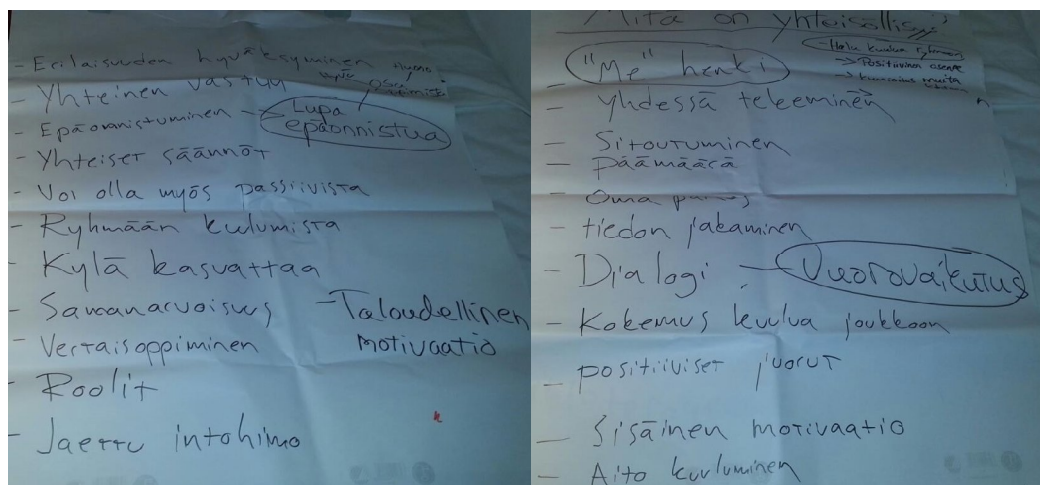 - Erilaisuuden hyväksyminen
- Yhteinen vastuu
- Epäonnistuminen
Lupa
epäonnistua
- Yhteiset säännöt
- Voi olla myös passiivista
- Ryhmään kuulumista
- Kylä kasvattaa
- Samanarvoisuus
- Taloudellinen
motivaatio
- Vertaisoppiminen
- Roolit
- Jaettu intohimo
Mitä on yhteisöllisyys
- Halu kuulua ryhmään
-> Positiivinen asenne
"Me" henki
- yhdessä tekeeminen
- Sitoutuminen
- päämäärä
- Oma panos
- tiedon jakaminen
- Dialogi - Vuorovaikutus
- Kokemus kuulua joukkoon
- positiiviset juorut
- Sisäinen motivaatio
- Aito kuuluminen